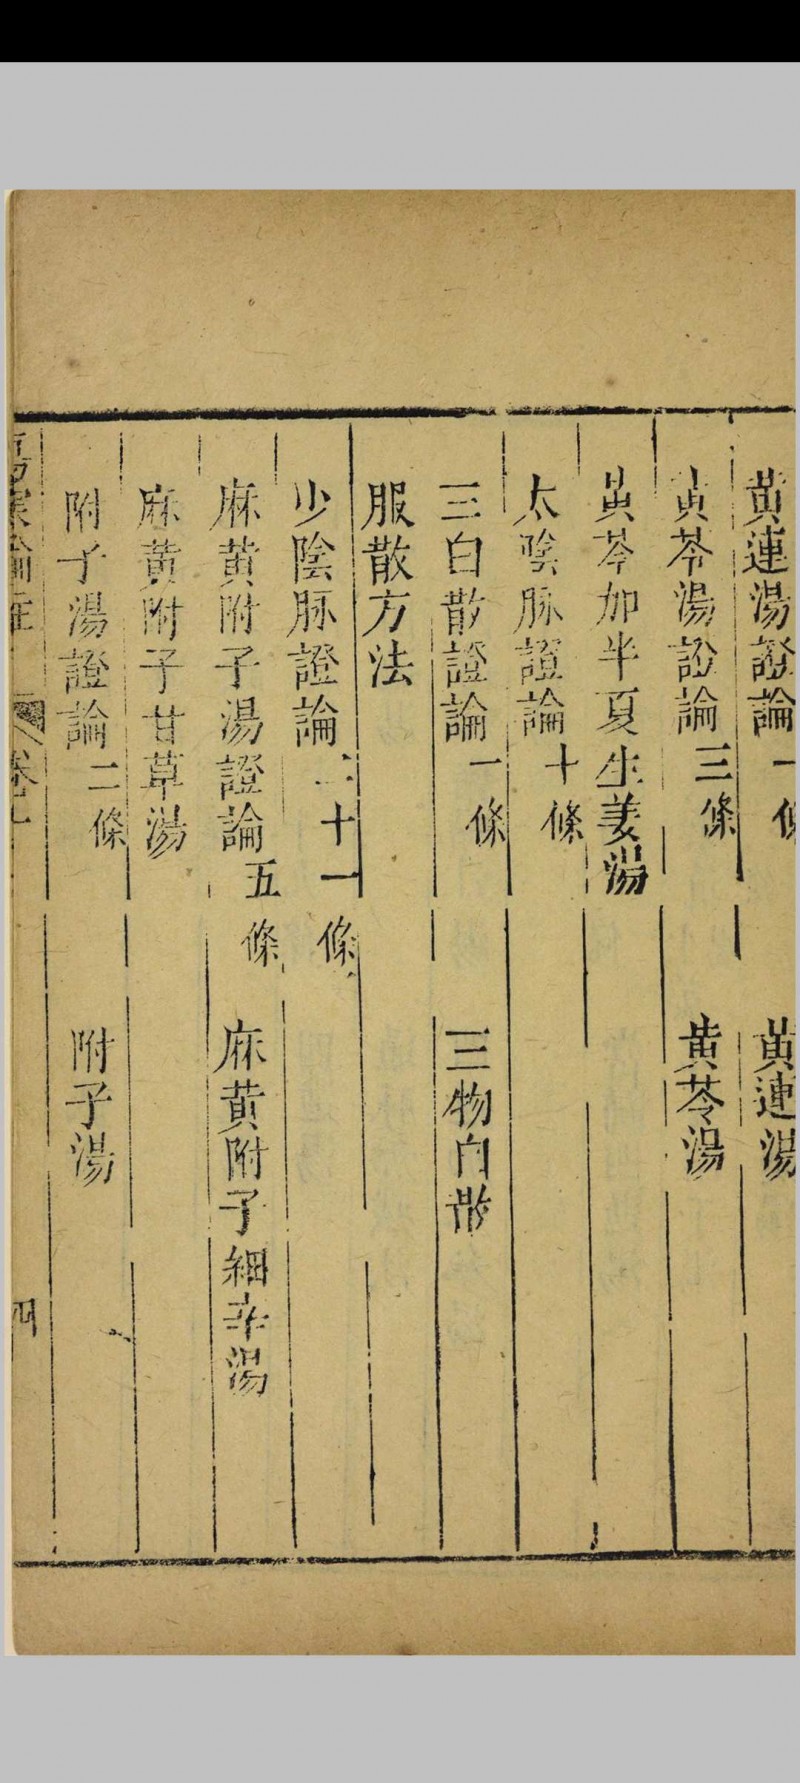 黄連湯證論一條　黄連湯
黄芩湯證論三條　黄芩湯
黄芩加半夏生姜湯
太陰脉證論十條
三白散證論一條　三物白散
服散方法
少陰脉證論二十一條
麻黄附子湯證論五條　麻黄附子細辛湯
麻黄附子甘草湯
附子湯證論二條　附子湯
傷寒論註　卷七　四